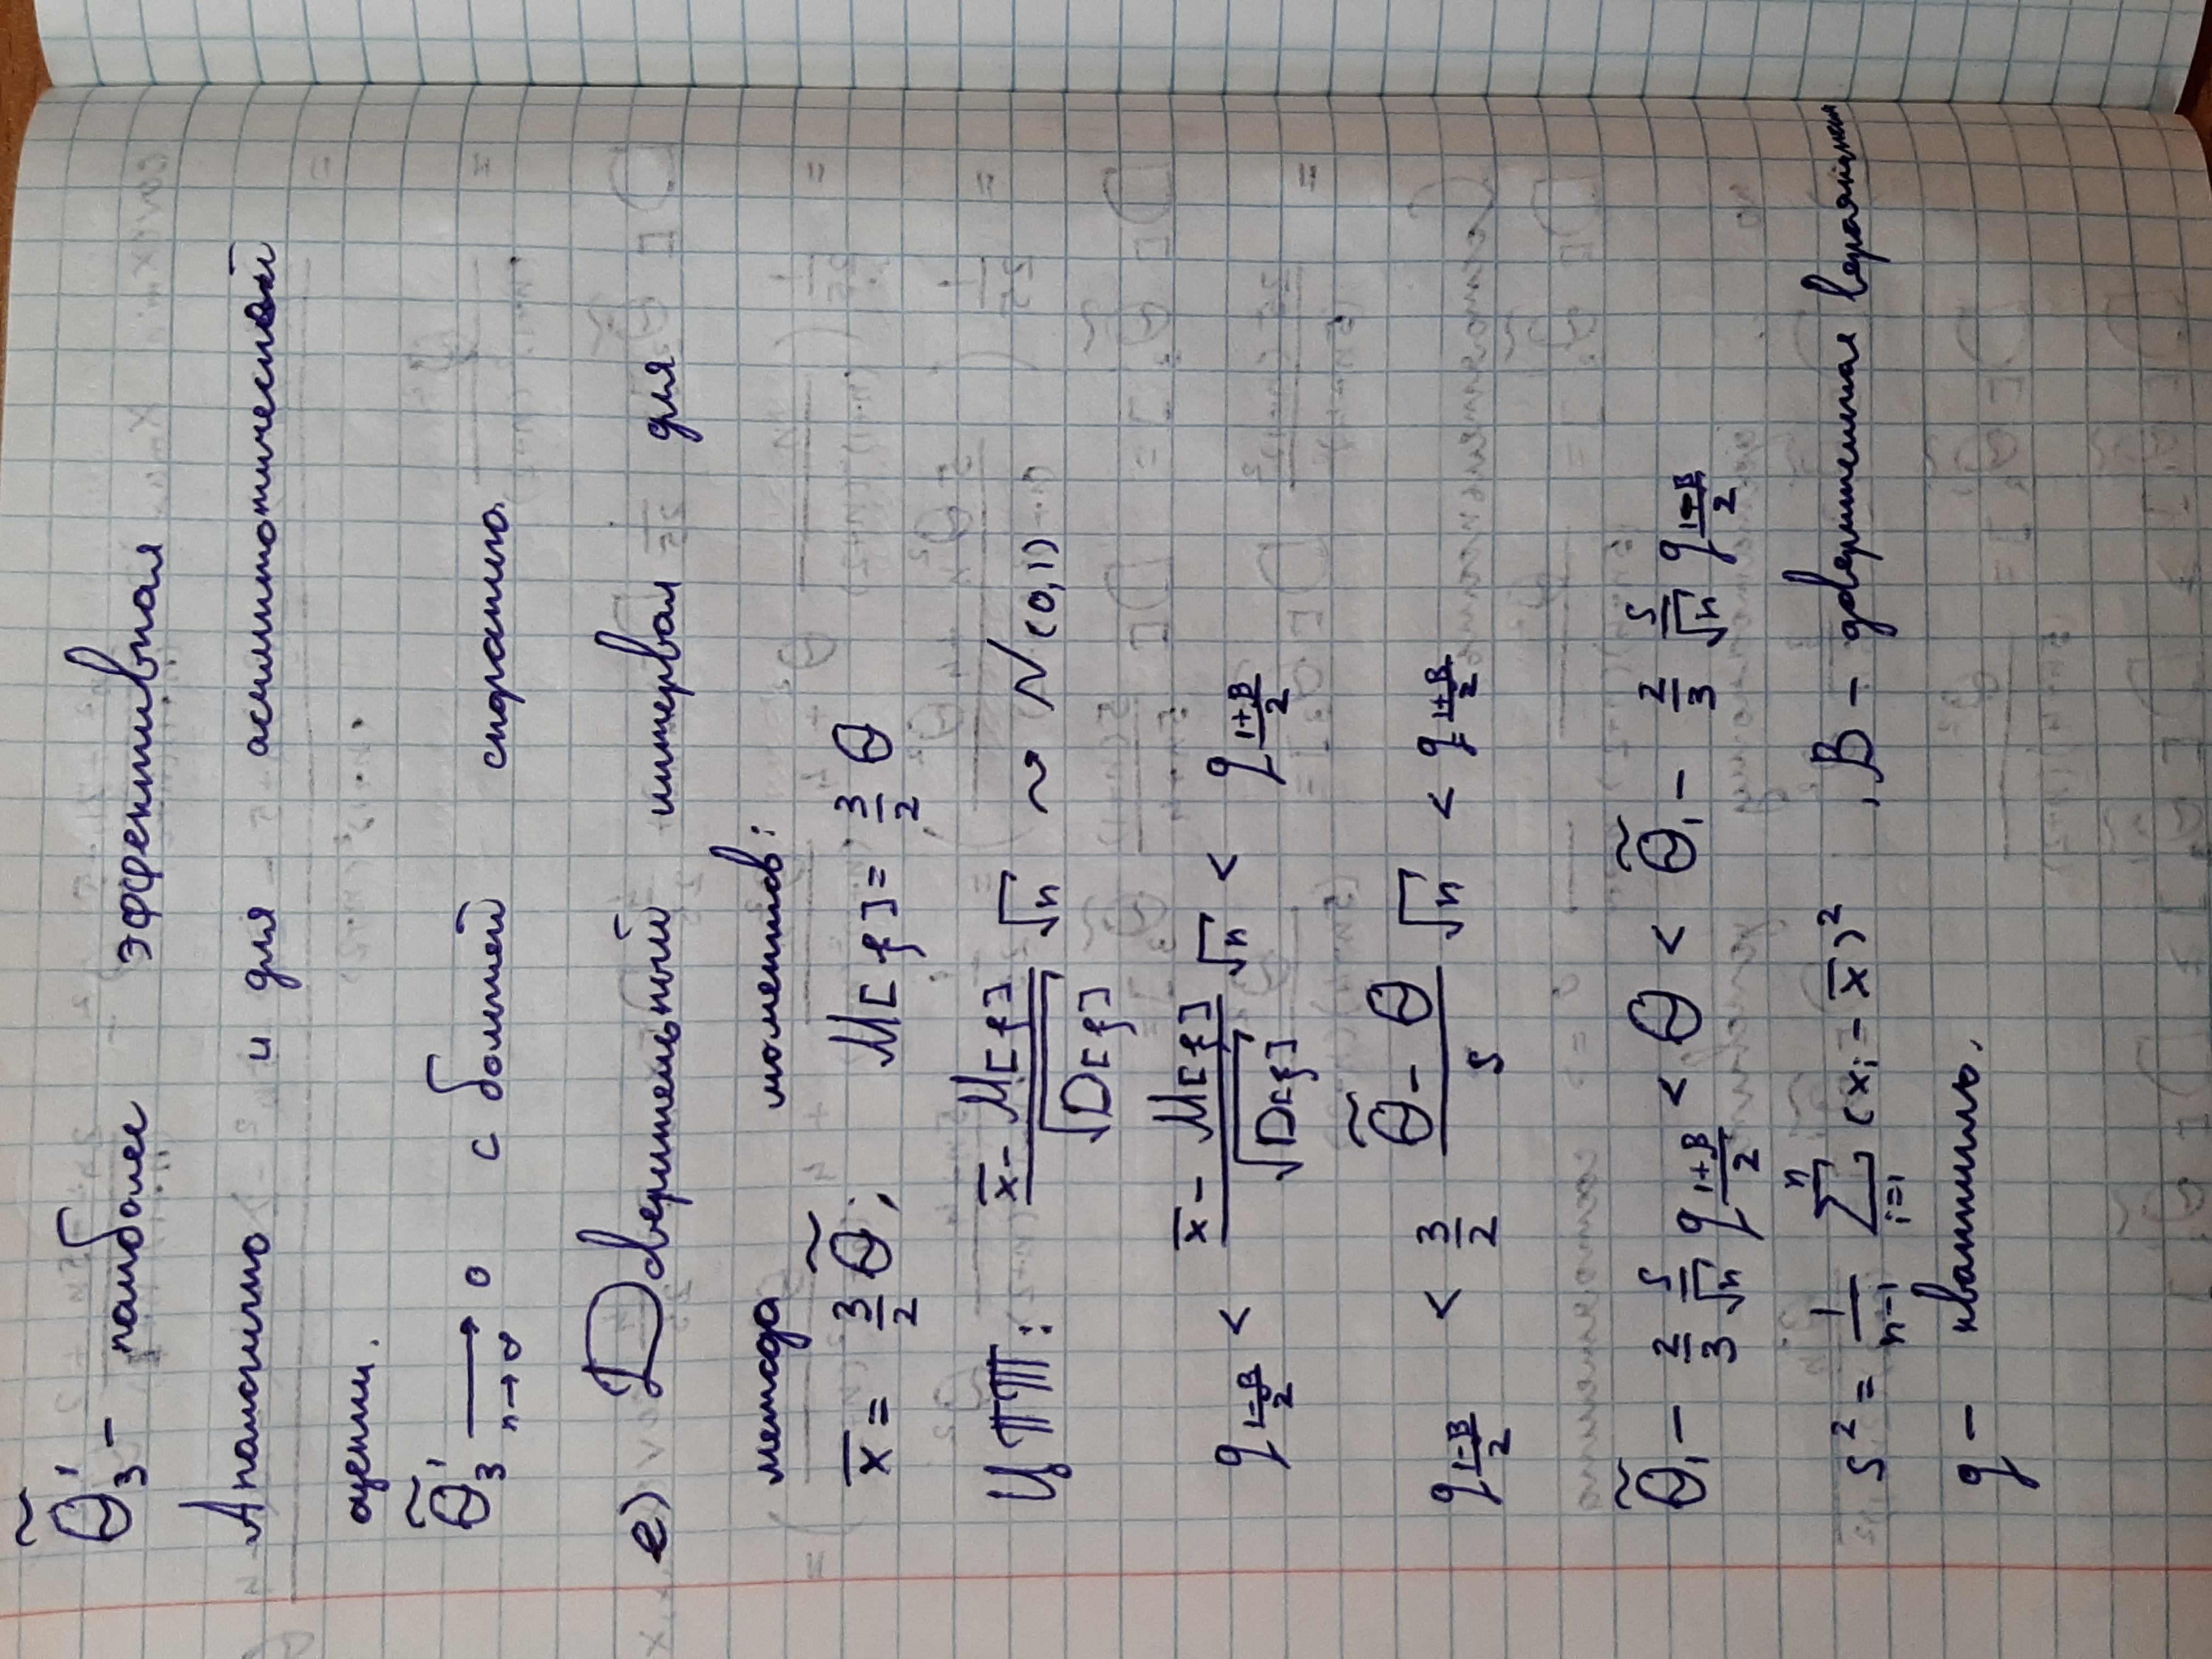 θ̃₃' – наиболее эффективная
Аналогично и для асимптотической
оценки.
θ̃₃' ⟶ 0 с большей скоростью.
n→∞
е) Доверительный интервал для
метода моментов:
x̅ = 3/2 θ̃; M[ξ] = 3/2 θ
ЦПТ: (x̅ – M[ξ])/√D[ξ] √n ⇝ N(0,1)
q_{(1–β)/2} < (x̅ – M[ξ])/√D[ξ] √n < q_{(1+β)/2}
q_{(1–β)/2} < 3/2 (θ̃ – θ)/s √n < q_{(1+β)/2}
θ̃₁ – 2/3 s/√n q_{(1+β)/2} < θ < θ̃₁ – 2/3 s/√n q_{(1–β)/2}
s² = 1/(n–1) ∑_{i=1}^{n} (x_i – x̅)², β – доверительная вероятность
q – квантиль.